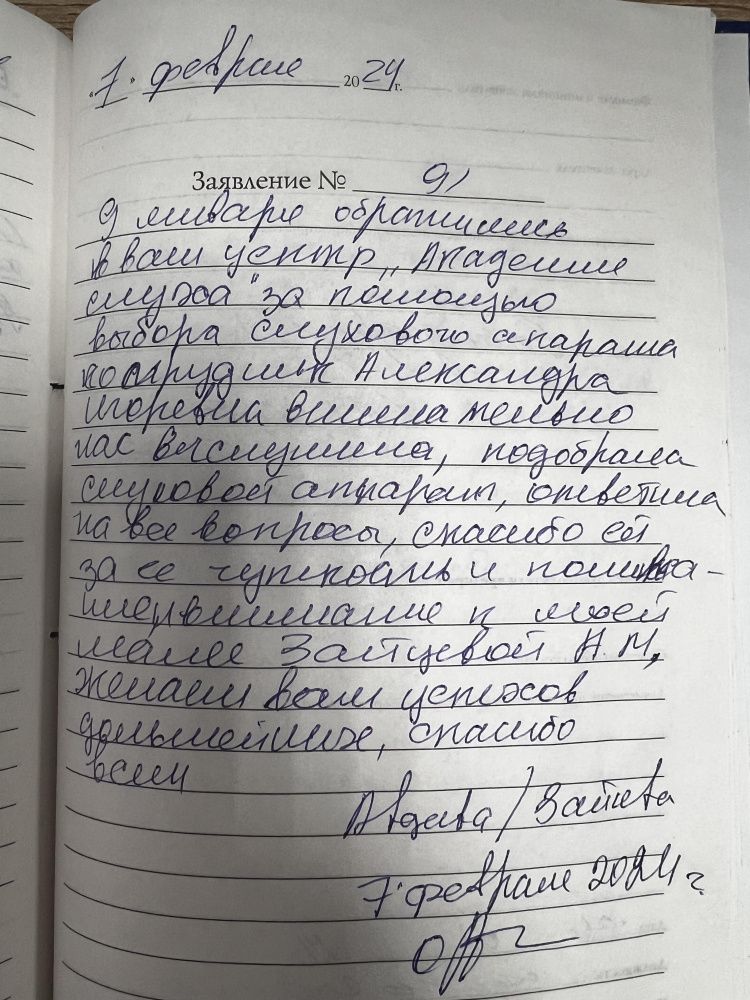 "7" февраля 2024 г.
Заявление № 91
9 января обратились
в ваш центр „Академия
слуха" за помощью
выбора слухового апарата
сотрудник Александра
Игоревна внимательно
нас выслушала, подобрала
слуховой аппарат, ответила
на все вопросы, спасибо ей
за ее чуткость и понима-
ние, внимание к моей
маме Зайцевой А.М,
желаем вам успехов
дальнейших, спасибо
всем
Авдеева / Зайцева
7 февраля 2024 г